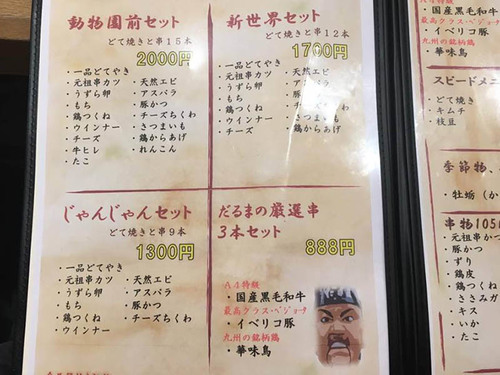 動物園前セット
どて焼きと串15本
2000円
・一品どてやき
・元祖串カツ
・うずら卵
・もち
・鶏つくね
・ウインナー
・チーズ
・牛ヒレ
・たこ
・天然エビ
・アスパラ
・豚かつ
・チーズちくわ
・さつまいも
・鶏からあげ
・れんこん
新世界セット
どて焼きと串12本
1700円
・一品どてやき
・元祖串カツ
・うずら卵
・もち
・鶏つくね
・ウインナー
・チーズ
・天然エビ
・アスパラ
・豚かつ
・チーズちくわ
・さつまいも
・鶏からあげ
じゃんじゃんセット
どて焼きと串9本
1300円
・一品どてやき
・元祖串カツ
・うずら卵
・もち
・鶏つくね
・ウインナー
・天然エビ
・アスパラ
・豚かつ
・チーズちくわ
だるまの厳選串
3本セット
888円
A4特級
・国産黒毛和牛
最高クラス・ベジョータ
・イベリコ豚
九州の銘柄鶏
・華味鳥
A4特級
・国産黒毛和牛
最高クラス・ベジョ
・イベリコ豚
九州の銘柄鶏
・華味鳥
スピードメニ
・どて焼き
・キムチ
・枝豆
季節物、
・牡蛎（か
串物105
・元祖串か
・豚かつ
・ずり
・鶏皮
・鶏つくね
・ささみガ
・キス
・いか
・たこ